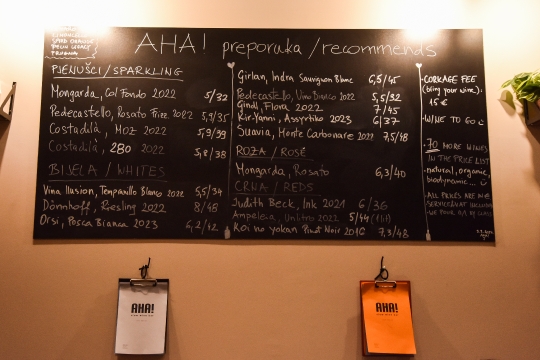 AHA! preporuka / recommends
PJENUŠCI / SPARKLING
Mongarda, Col Fondo 2022 5/32
Pedecastello, Rosato Frizz. 2022 5,9/35
Costadilà, Moz 2022 5,9/39
Costadilà, 280 2022 5,8/38
BIJELA / WHITES
Vina Ilusion, Tempranillo Blanco 2022 5,5/34
Dönnhoff, Riesling 2022 8/48
Orsi, Posca Bianca 2023 6,2/42
Girlan, Indra Sauvignon Blanc 6,5/45
Pedecastello, Vino Bianco 2022 5,5/32
Gindl, Flora 2022 7/45
Kir-Yanni, Assyrtiko 2023 6/37
Suavia, Monte Carbonare 2022 7,5/48
ROZA / ROSÉ
Mongarda, Rosato 6,3/40
CRNA / REDS
Judith Beck, Ink 2021 6/36
Ampeleia, Unlitro 2022 5/44 (1lit)
Koi no yokan Pinot Noir 2016 7,3/48
CORKAGE FEE
(bring your wine):
15 €
WINE TO GO
70 MORE WINES
IN THE PRICE LIST
natural, organic,
biodynamic...
ALL PRICES ARE IN €
AHA!
AHA!